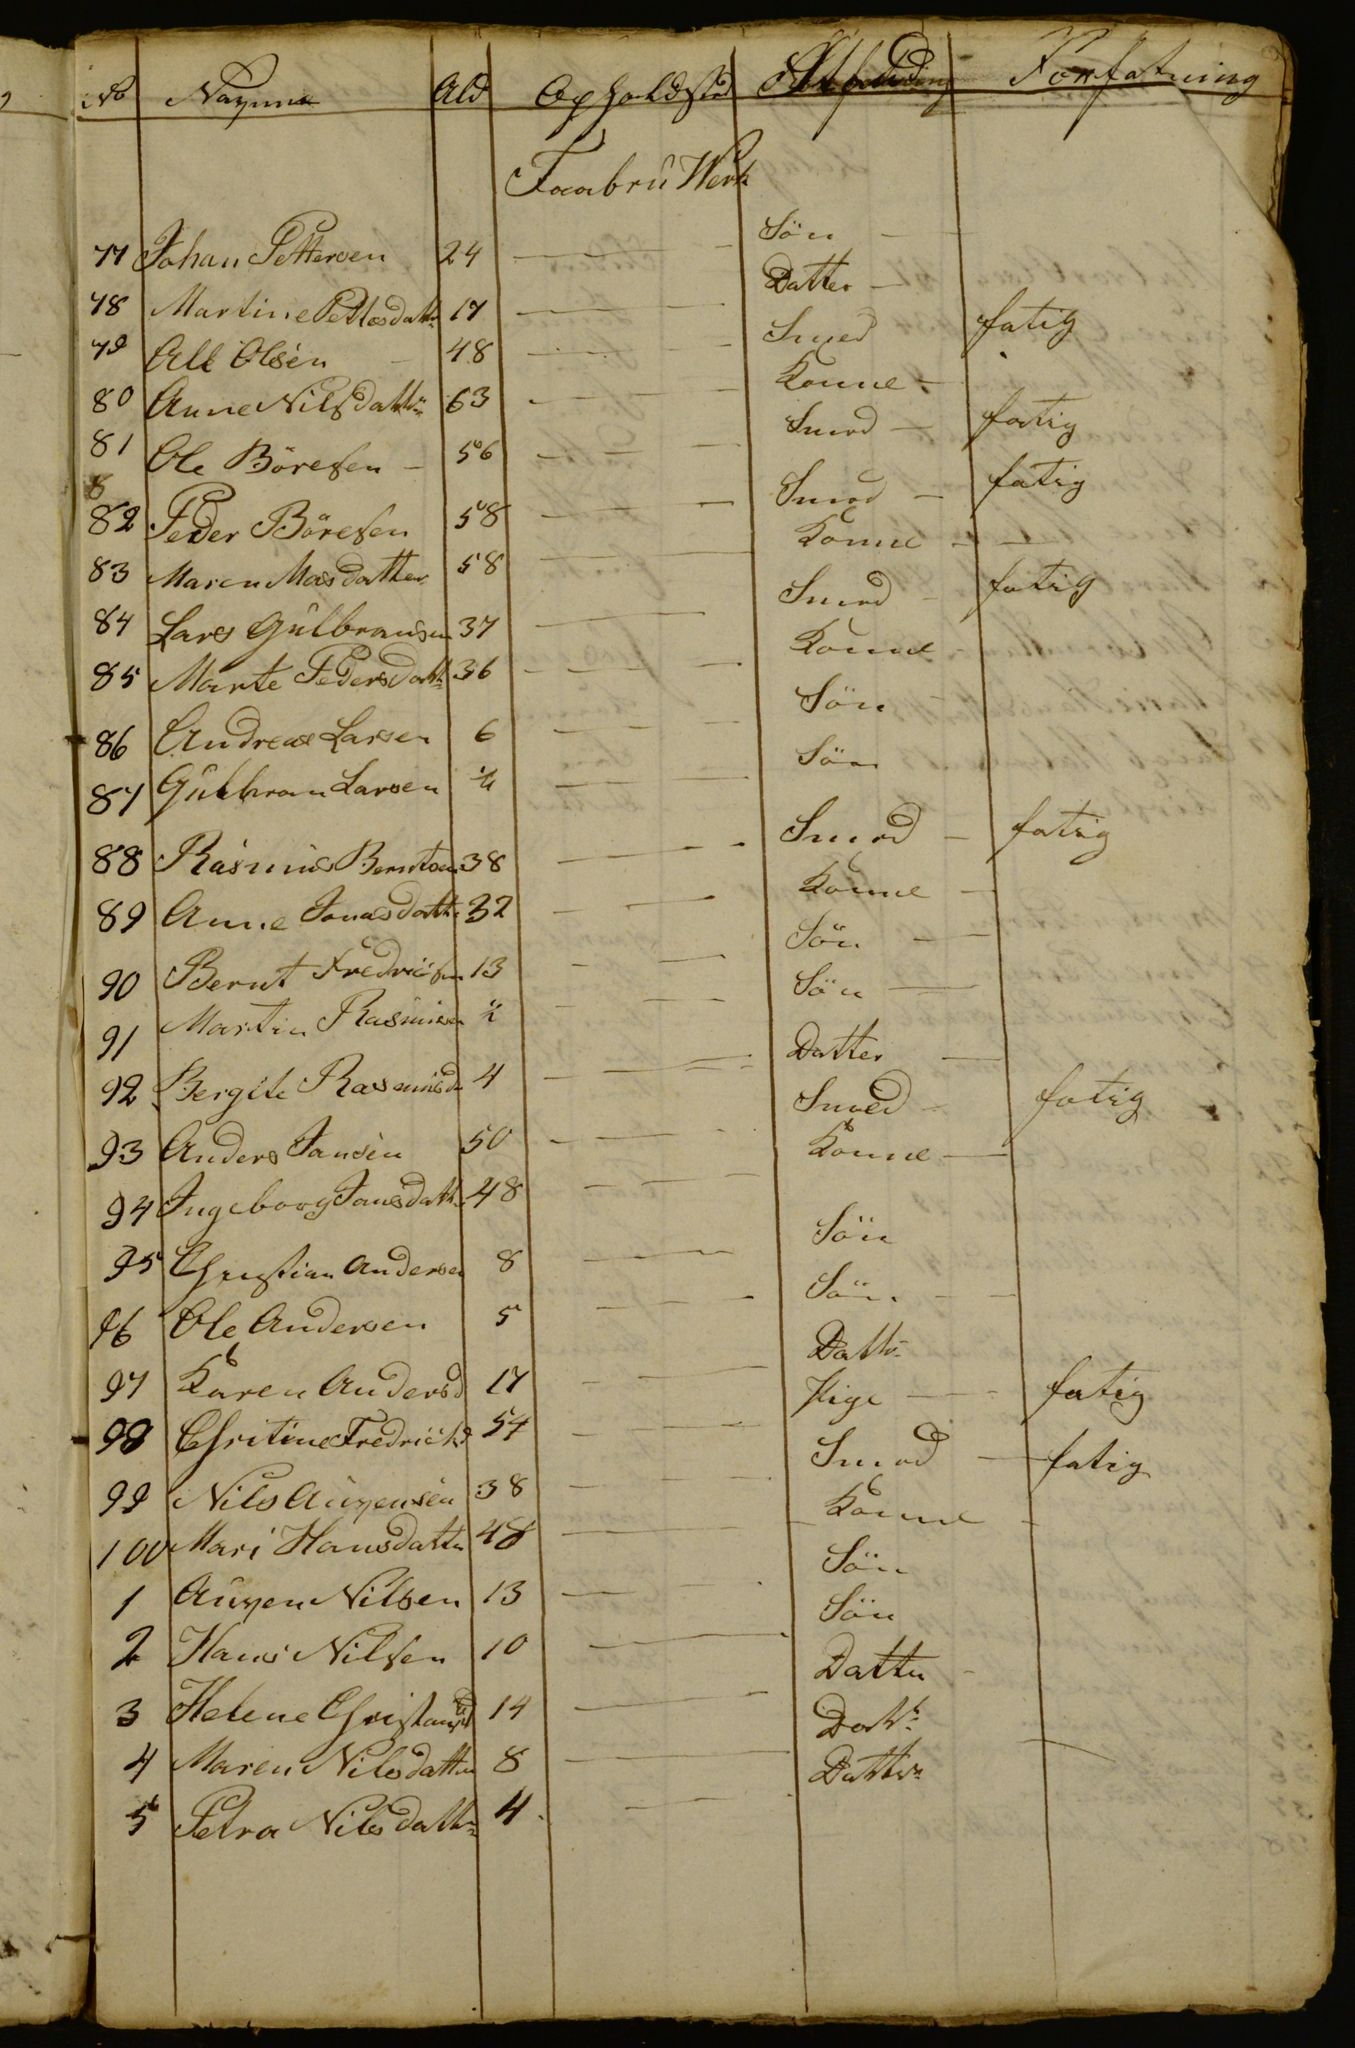 No Navnne Ald Opholdsted Forfatning
Faabru Werk
77 Johan Pettersen 24 — — Sön —
78 Martine Pettersdattr 17 — — Datter —
79 Ole Olsen — 48 — — Smed fatig
80 Anne Nilsdatter 63 — — Konne —
81 Ole Böresen — 56 — — Smed — fatig
8
82 Peder Böresen 58 — — Smed — fatig
83 Maren Masdatter 58 — — Konne — —
84 Lars Gulbransen 37 — — Smed — fatig
85 Marte Pedersdatt 36 — — Konne
86 Andreas Larsen 6 — — Sön
87 Gulbran Larsen ½ — — Sön
88 Rasmus Berntsen 38 — — Smed — fatig
89 Anne Jonasdatt 32 — — Konne —
90 Bernt Fredrichsen 13 — — Sön —
91 Martin Rasmusen ½ — — Sön —
92 Bergite Rasmusd 4 — — Datter —
93 Anders Jansen 50 — — Smed — fatig
94 Ingeborg Jansdatt 48 — — Konne —
95 Christian Andersen 8 — — Sön
96 Ole Andersen 5 — — Sön — —
97 Karen Andersd 17 — — Dattr
98 Chritine Fredrichsd 54 — — Pige — fatig
99 Nils Auyensen 38 — — Smed — fatig
100 Mari Hansdatter 48 — — Konne —
1 Auyen Nilsen 13 — — Sön
2 Hans Nilsen 10 — — Sön
3 Helene Christansd 14 — — Datter —
4 Maren Nilsdatter 8 — — Datr
5 Petra Nilsdatter 4 — — Datter